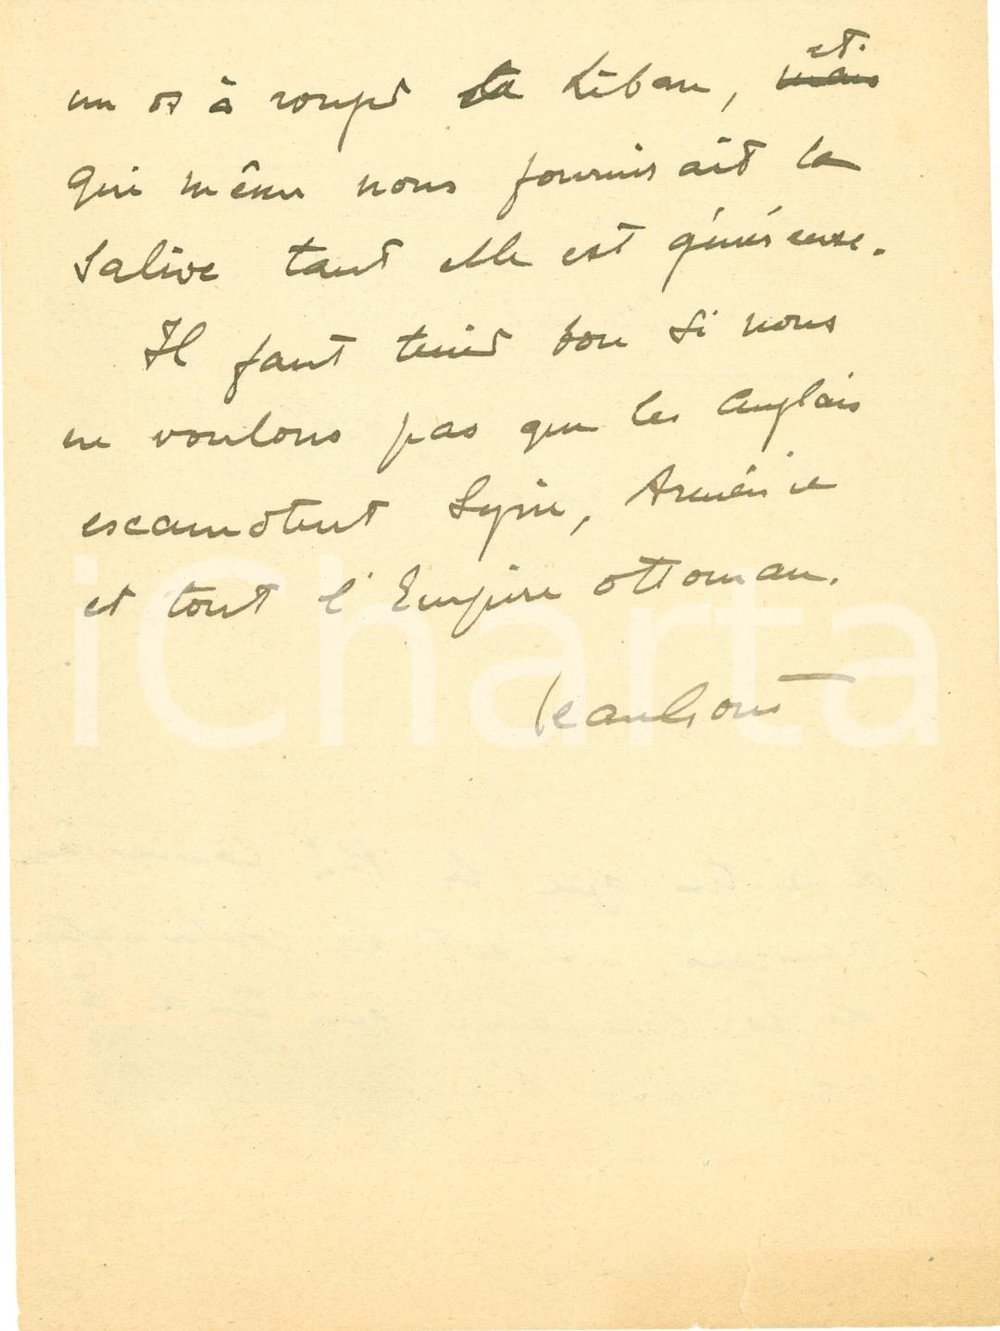 un os à ronger le Liban, et
qui même nous fournirait la
salive tant elle est généreuse.
Il faut tenir bon si nous
ne voulons pas que les Anglais
escamotent Syrie, Arménie
et tout l'Empire ottoman.
iCharta
Jean Gout